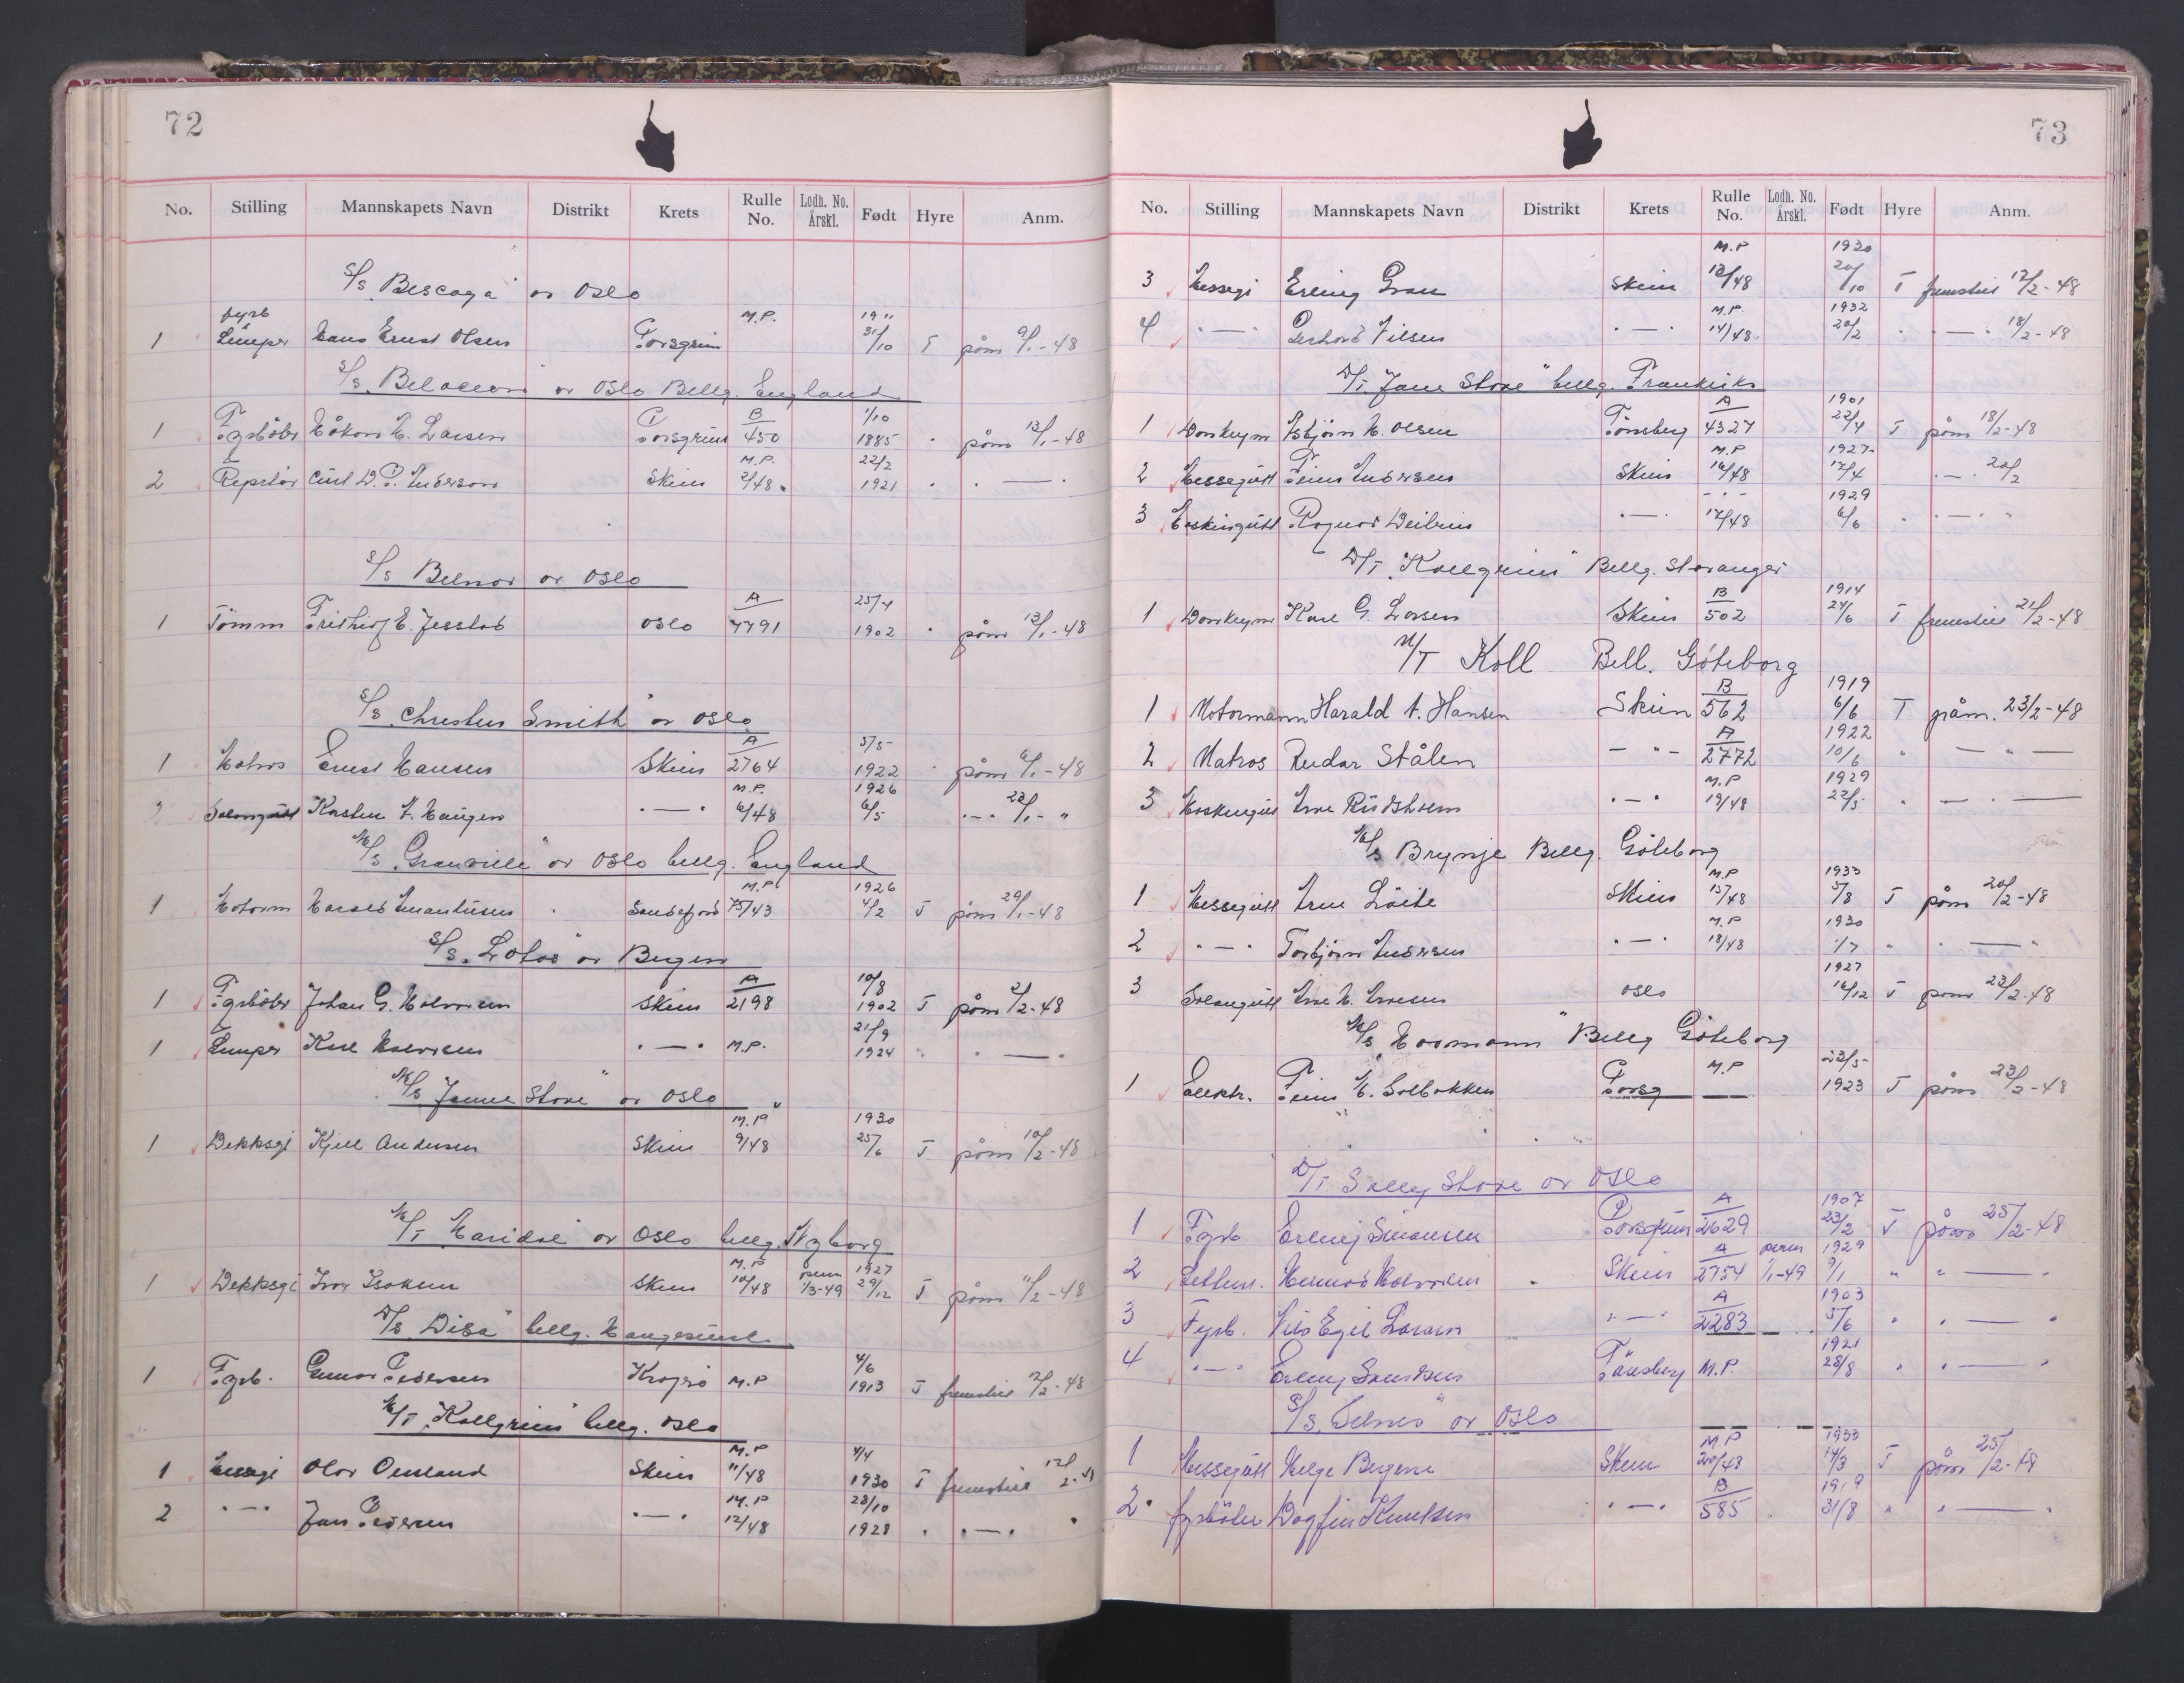 72
No. Stilling Mannskapets Navn Distrikt Krets Rulle No. Lodh. No. Årskl. Født Hyre Anm.
S/S "Biscaya" av Oslo
fyrb M.P. 19"
1 Lemper Hans Ernst Olsen Porsgrun 31/10 T påm 9/1-48
S/S "Belocean" av Oslo Bellg. England
1 Fyrbøter Håkon M. Larsen Porsgrunn B 450 1/10 1885 " påm 13/1-48
2 Repslår Curt W. P. Anderson Skien M.P. 2/48. 22/2 1921 " " — "
S/S Belnor av Oslo
1 Tømm Frithjof E. Jesslab Oslo A 7791 25/4 1902 " påm 13/1-48
S/S "Christen Smith" av Oslo
1 Matros Ernst Hansen Skien A 2764 5/5 1922 " påm 6/1-48
2 Salongutt Karsten A. Haugen " — " M.P. 6/48 1926 6/5 " — " 22/1- "
M/S "Granville" av Oslo bellg. England
1 Motorm Harald Amantusen Sandefjord M.P. 75/43 1926 4/2 T påm 29/1-48
S/S "Lotos" av Bergen
1 Fyrbøter Johan G. Halvorsen Skien A 2198 10/8 1902 T påm 2/2-48
1 Lemper Karl Halvorsen " — " M.P. 21/9 1924 " " — "
M/S "Janne Stove" av Oslo
1 Dekksgt Kjell Andersen Skien M.P 9/48 1930 25/6 T påm 10/2-48
M/T "Maridal" av Oslo bellg. Nyborg
1 Dekksgt Ivar Isaksen Skien M.P 10/48 perm 1/3-49 1927 29/12 T påm 11/2-48
D/S "Disa" bellg. Haugesund
1 Fyrb. Gunnar Pedersen Kragerø M.P 4/6 1913 T fremstil 12/2-48
M/T "Kollgrim" bellg. Oslo
1 Messegt Olav Omland Skien M.P 11/48 4/4 1930 T fremstil 12/2-48
2 " — " Jan Pedersen " — " M.P 12/48 28/10 1928 " " — " "
73
No. Stilling Mannskapets Navn Distrikt Krets Rulle No. Lodh. No. Årskl. Født Hyre Anm.
3 Messegt Erling Gran Skien M.P 13/48 1930 20/10 T fremstil 17/2-48
4 " — " Gerhard Nilsen " — " M.P. 14/48. 1932 20/2 " " — " 18/2-48
D/T. "Janne Stove" bellg. Frankrike
1 Donkeym Asbjørn M. Olsen Tønsberg A 4327 1901 22/4 T påm 18/2-48
2 Messegutt Finn Andersen Skien M.P 16/48 1927 17/4 " — " 20/2
3 Maskingutt Ragnar Weibrin " — " - " - 17/48 1929 6/6 " " — " "
D/T. "Kollgrim" Bellg. Stavanger
1 Donkeym Kare G. Larsen Skien B 502 1914 24/6 T fremstil 21/2-48
M/T Koll Bell. Göteborg
1 Motormann Harald A. Hansen Skien B 562 1919 6/6 T påm. 23/2-48
2 Matros Reidar Stålen — " — A 2772 1922 10/6 " — " —
3 Maskingut Arne Rudsholm " — " M.P 19/48 1929 22/5 " — " —
M/S Brynje Bellg. Göteborg
1 Messegutt Arne Løite Skien M.P 15/48 1933 5/8 T påm 20/2-48
2 " — " Torbjørn Andersen " — " M.P 18/48 1930 1/7 " " — "
3 Salongutt Arne M. Arnesen Oslo 1927 16/12 T påm 23/2-48
M/S "Hovmann" Bellg Göteborg
1 Elektr. Finn M. Solbakken Porsg M.P — 23/5 1923 T påm 23/2-48
D/T Sally Stove av Oslo
1 Fyrb Erling Simonsen Porsgrunn A 2629 1907 23/2 T påm 25/2-48
2 Lettm. Harmod Halvorsen Skien A 2754 perm 1/1-49 1929 9/1 " " — "
3 Fyrb. Nils Egil Larsen " — " A 2283 1903 5/6 " " — "
4 " — " Erling Knudsen Tønsberg M.P. 1921 28/8 " " — "
S/S. "Selnes" av Oslo
1 Messegutt Helge Bergene Skien M.P 20/48 1933 14/3 T påm 25/2-48
2 fyrbøter Dagfin Knutsen " — " B 585 1919 31/8 " " — "